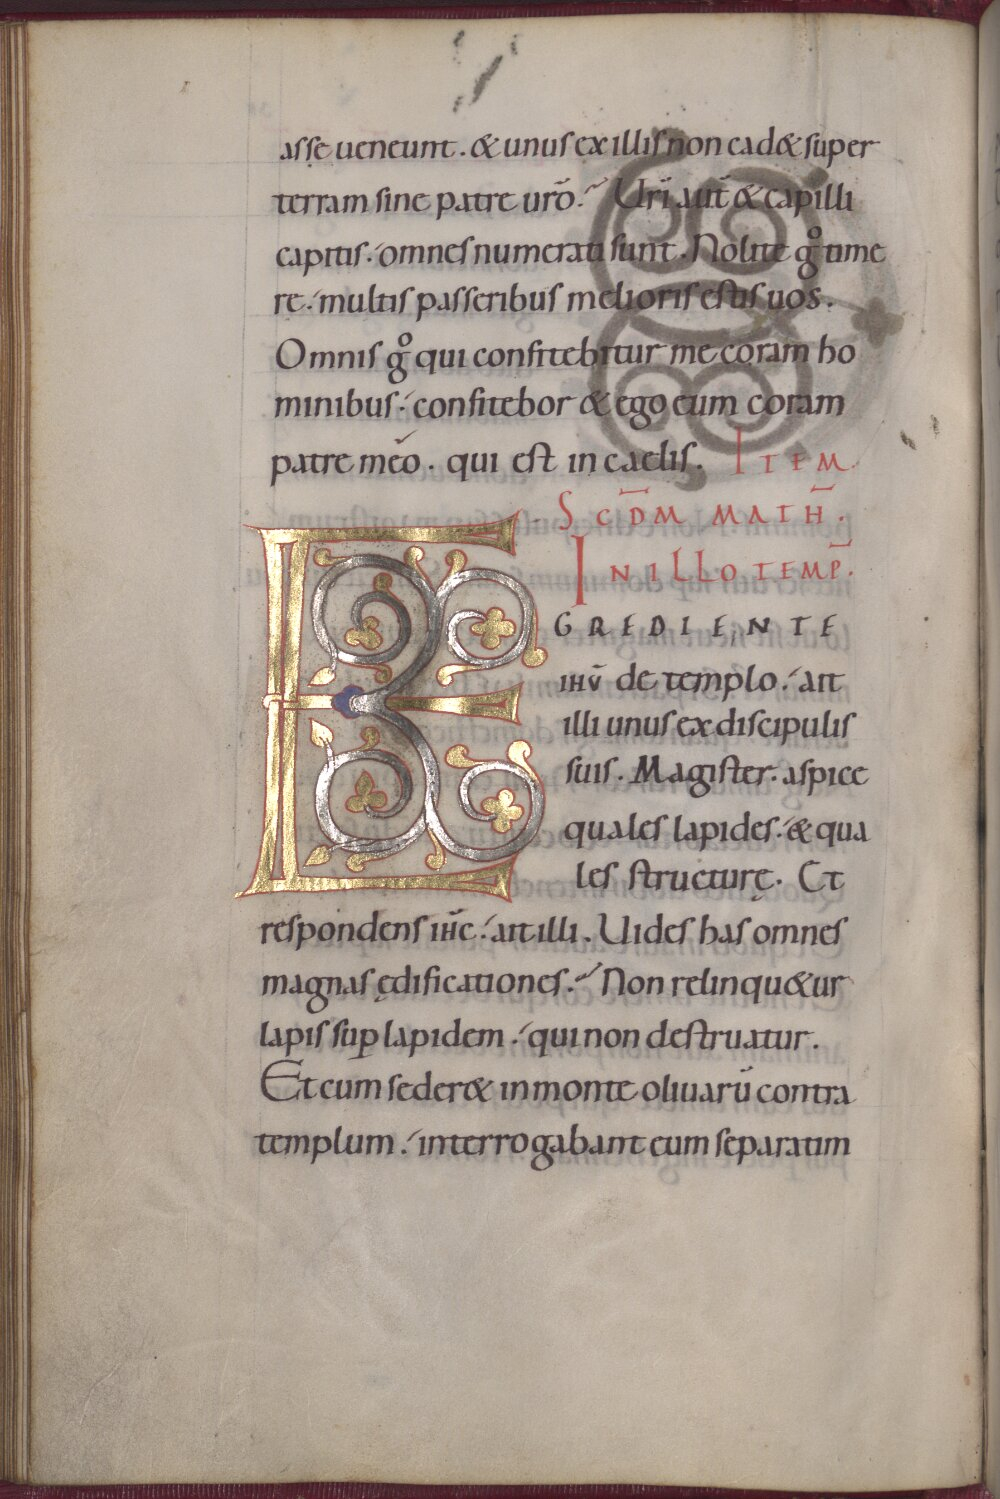 asse ueneunt. & unus ex illis non cad& super
terram sine patre ur̄o. Ur̄i aut̄ & capilli
capitis. omnes numerati sunt. Nolite gͦ time
re. multis passeribus melioris estis uos.
Omnis gͦ qui confitebitur me coram ho
minibus. confitebor & ego eum coram
patre mēo. qui est in caelis. ITEM
SCD̄M MATH̄.
IN ILLO TEMP̄.
EGREDIENTE
ıhū de templo. ait
illi unus ex discipulis
suis. Magister. aspice
quales lapides. & qua
les structurę. Et
respondens ıh̄c. ait illi. Uides has omnes
magnas ędificationes. Non relinqu&ur
lapis suꝑ lapidem. qui non destruatur.
Et cum seder& in monte oliuarū contra
templum. interrogabant eum separatim